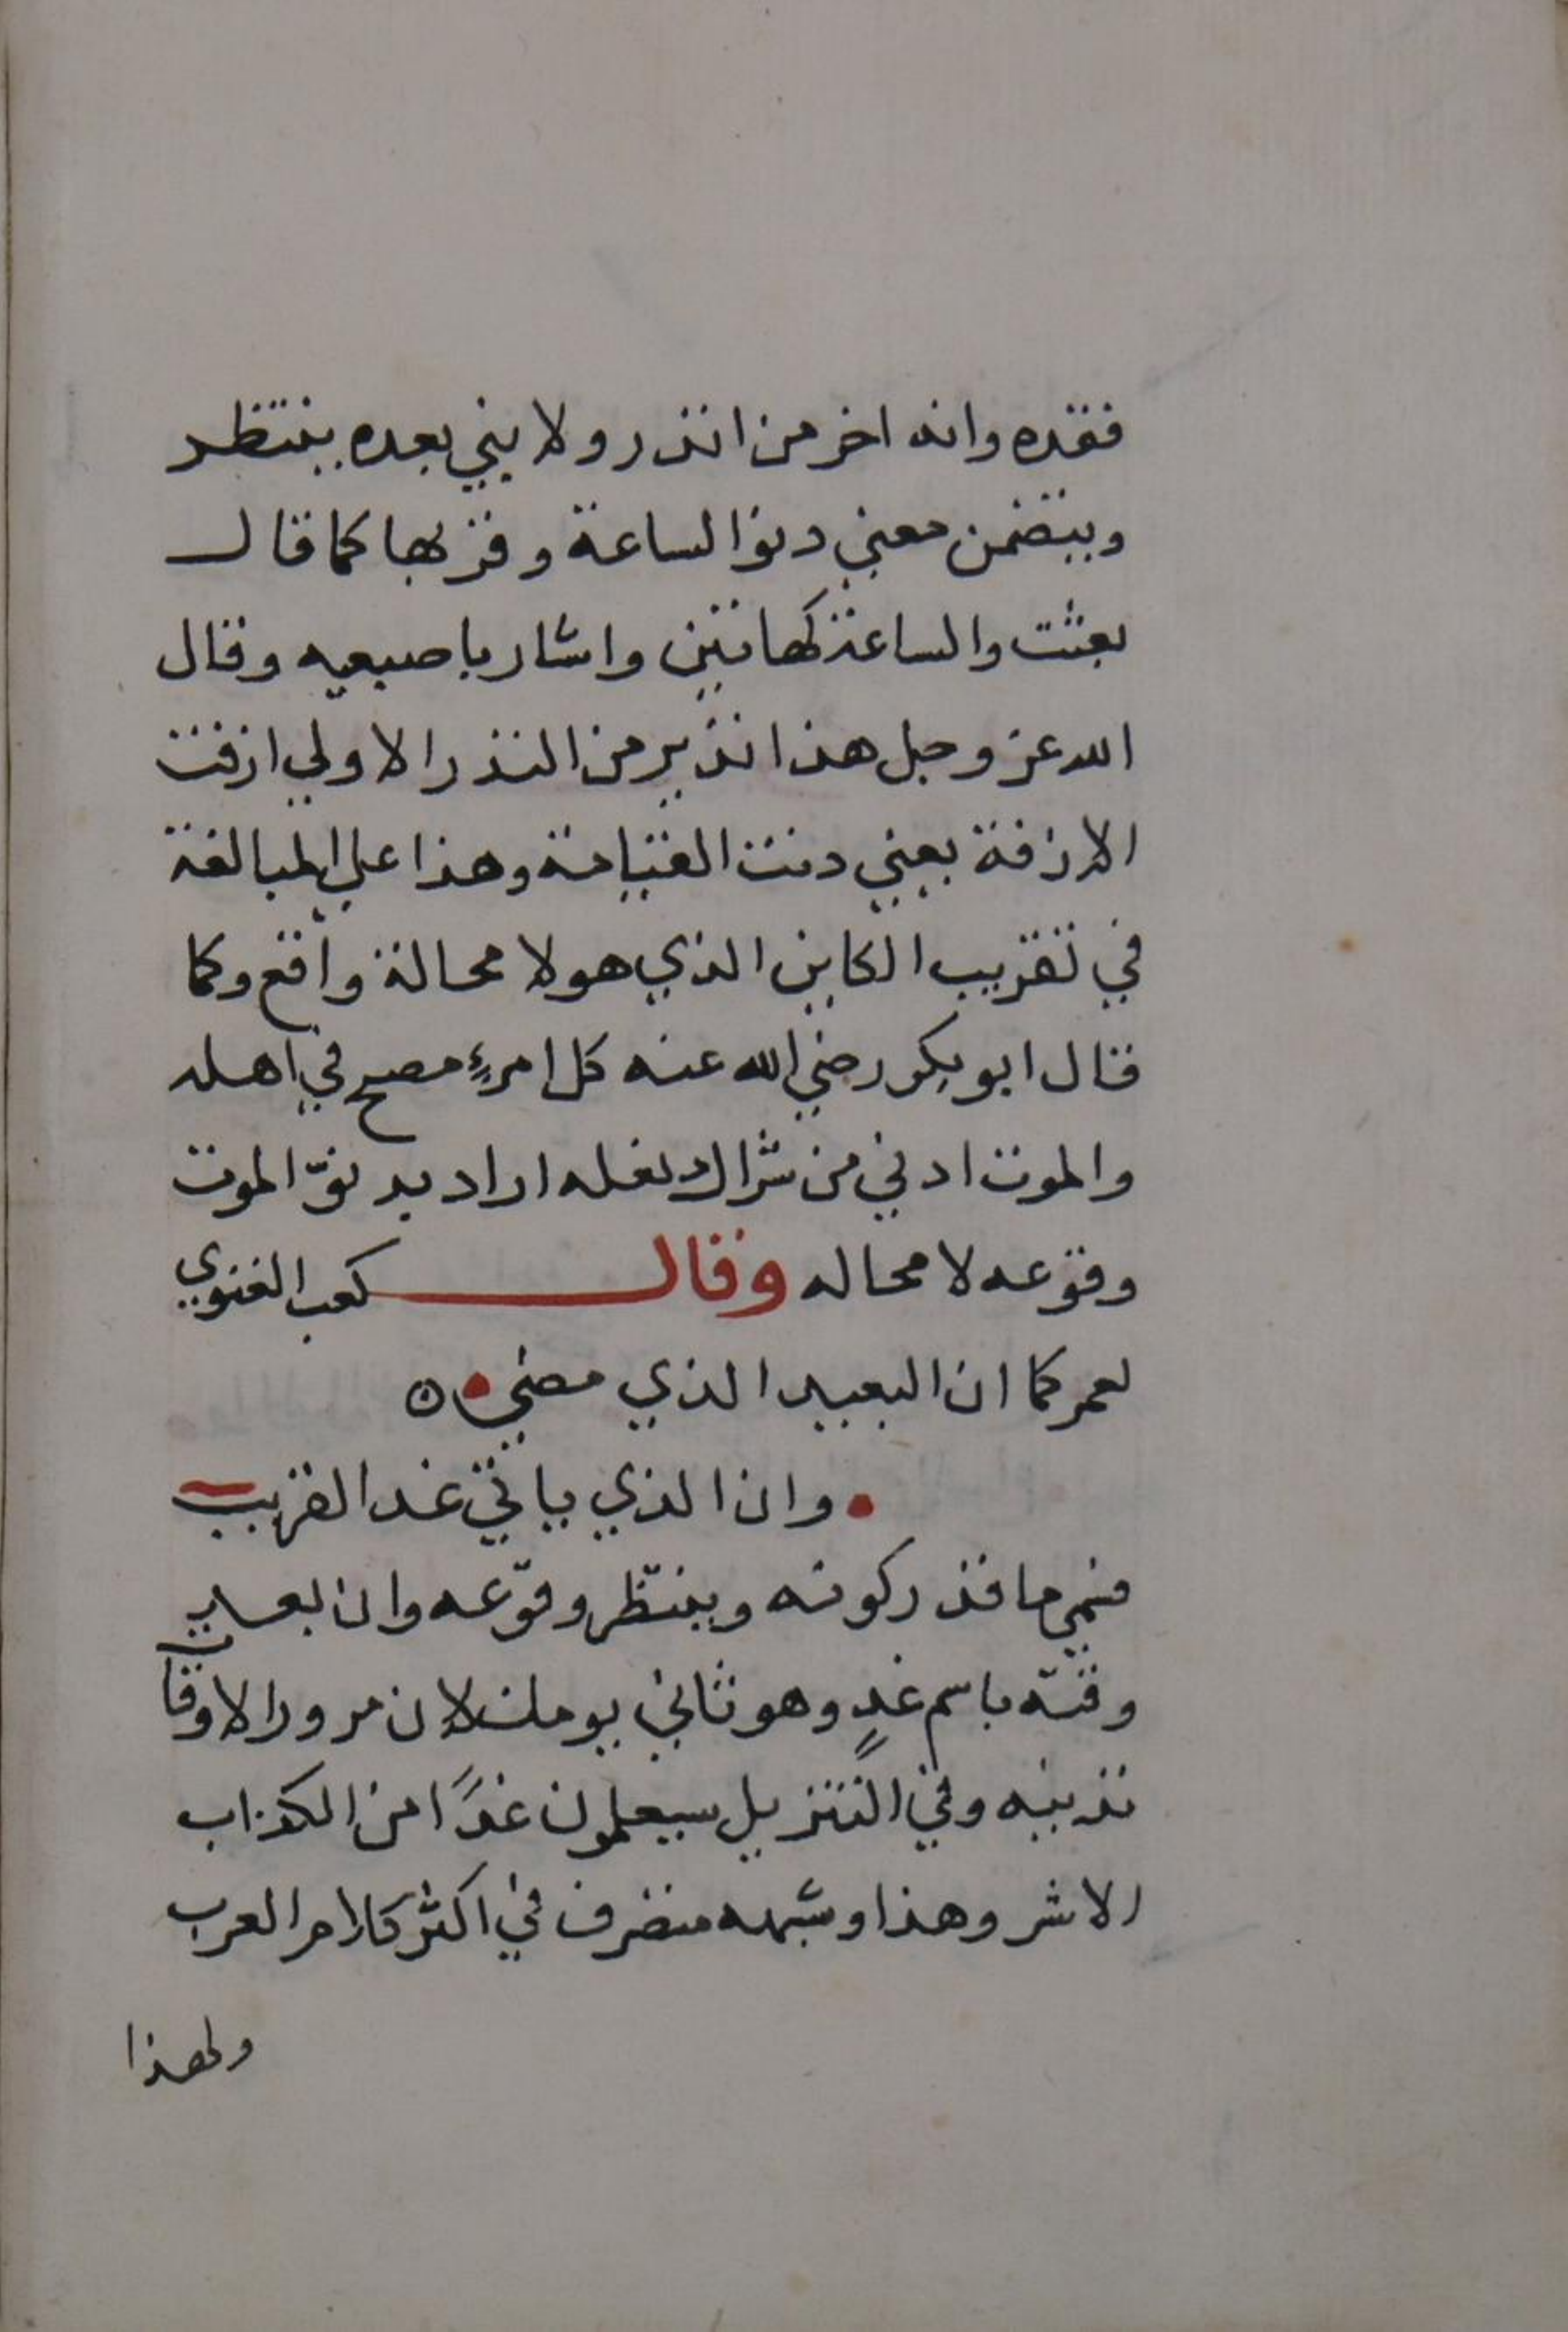 فقده وانه اخر من انذر ولا نبي بعده ينتظر
ويتضمن معني دنو الساعة وقربها كما قال
بعثت والساعة كهاتين واشار باصبعيه وقال
الله عز وجل هذا نذير من النذر الاولي ازفت
الازفة يعني دنت القيامة وهذا علي المبالغة
في تقريب الكاين الذي هو لا محالة واقع وكما
قال ابو بكر رضي الله عنه كل امرءٍ مصبح في اهله
والموت ادني من شراك نعله اراد به دنوّ الموت
وقوعه لا محاله وقال كعب الغنوي
لعمركما ان البعيد الذي مضي
وان الذي ياتي غدا لقريب
فنمي ما قدر كونه وينتظر وقوعه وان بعد
وقته باسم غدٍ وهو ثاني يومك لان مرور الاوقات
تدنيه وفي التنزيل سيعلمون غدًا من الكذاب
الاشر وهذا وشبهه متصرف في اكثر كلام العرب
ولهذا